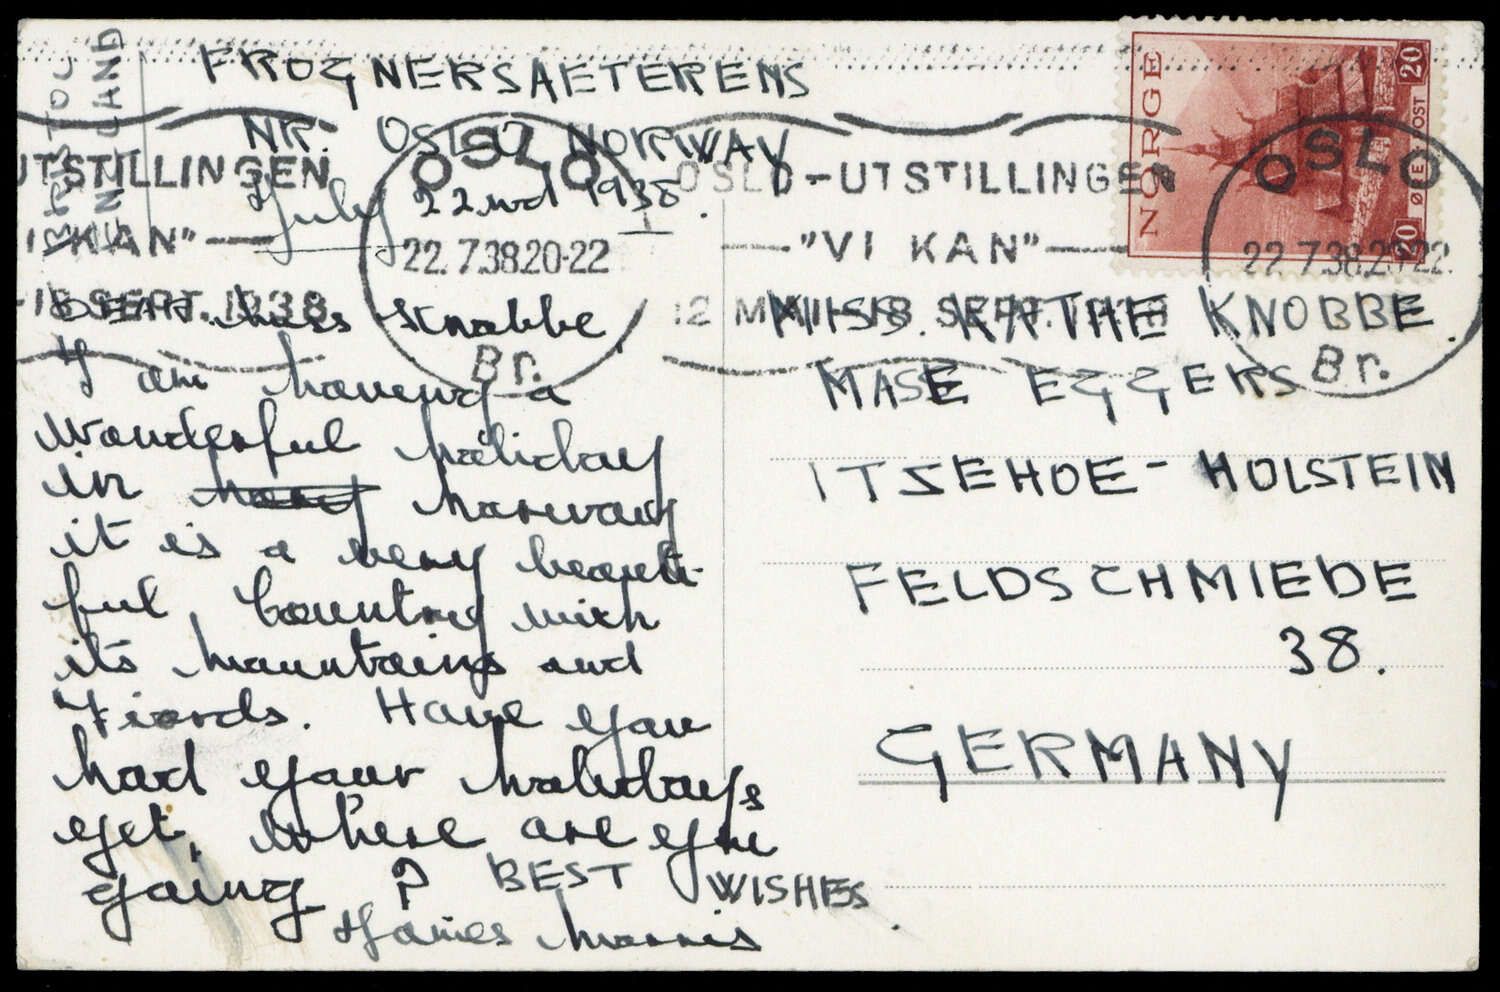 FROGNERSAETERENS
NR. OSLO NORWAY
July 22nd 1938.
Dear Miss Knobbe,
I am haveing a
wonderful holiday
in norway
it is a very beauti-
ful country with
its mountains and
Fiords. Have you
had your holidays
yet. Where are you
going ? BEST WISHES.
James Morris
BRISTOL
ENGLAND
MISS. KATHE KNOBBE.
MASE EGGERS
ITSEHOE - HOLSTEIN
FELDSCHMIEDE
38.
GERMANY
NORGE
20 ØRE POST 20
UTSTILLINGEN
"VI KAN"
-18 SEPT. 1938
OSLO
22.7.38.20-22
Br.
OSLO-UTSTILLINGEN
"VI KAN"
12 MAI-18 SEPT. 1938
OSLO
22.7.38.20-22
Br.